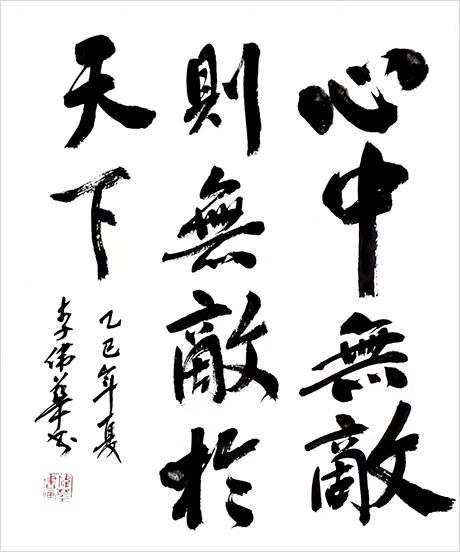 心中無敵
則無敵於
天下
乙巳年夏
李偉華书